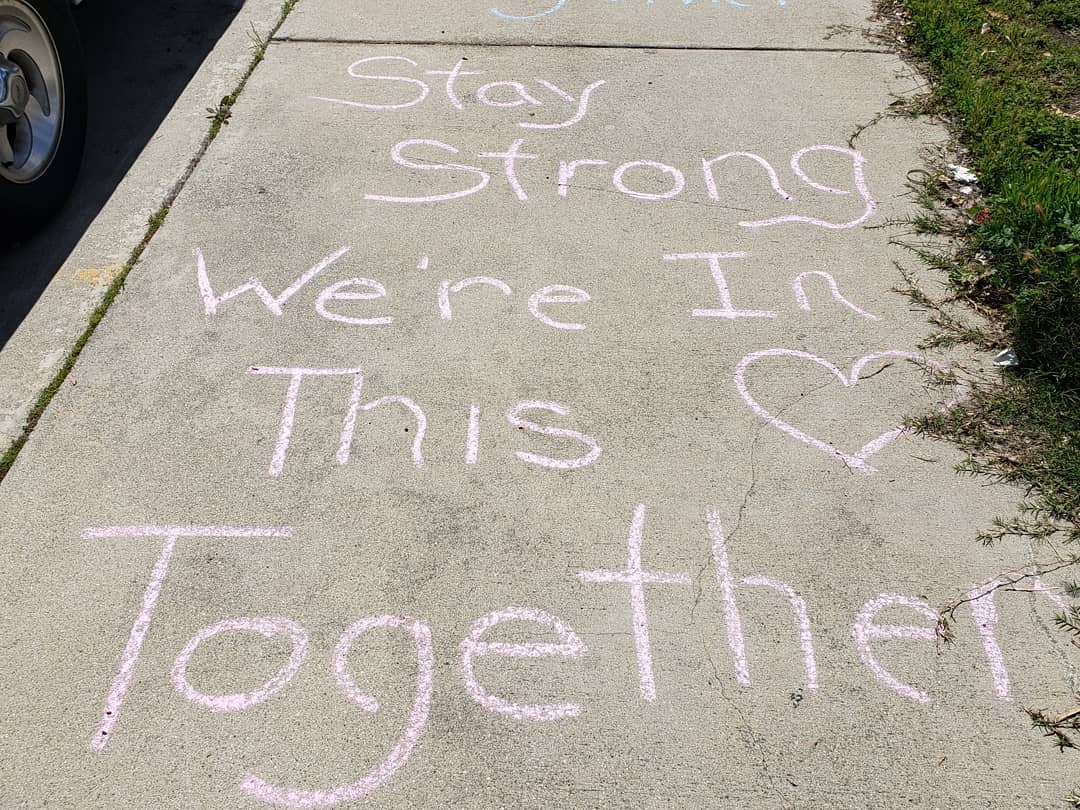 Stay
Strong
We're In
This
Together